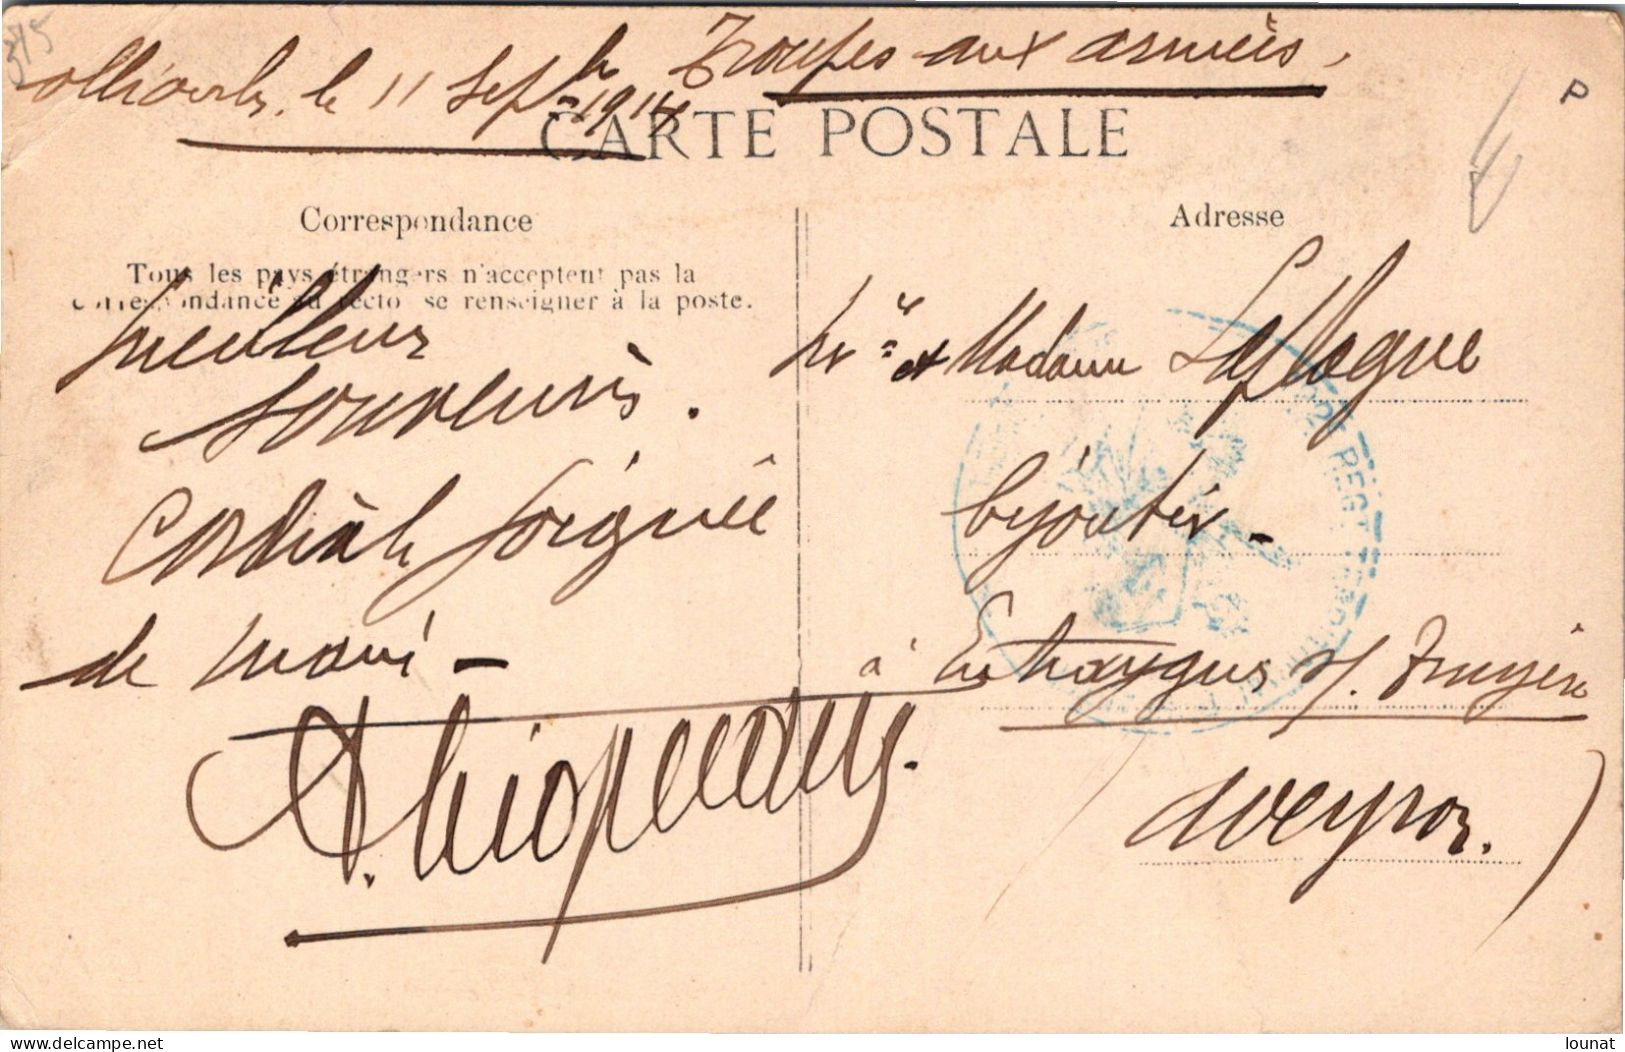 375
Ollioules, le 11 Sepbre 1914 Troupes aux armées.
P
CARTE POSTALE
Correspondance
Tous les pays étrangers n'acceptent pas la
Correspondance au recto se renseigner à la poste.
Meilleurs
souvenirs.
Cordiale poignée
de main -
Adresse
Mr et Madame Laplogue
bijoutier -
à Entraygues s/ Truyère
Aveyron.
REGT TERRITORIAL
www.delcampe.net
lounat